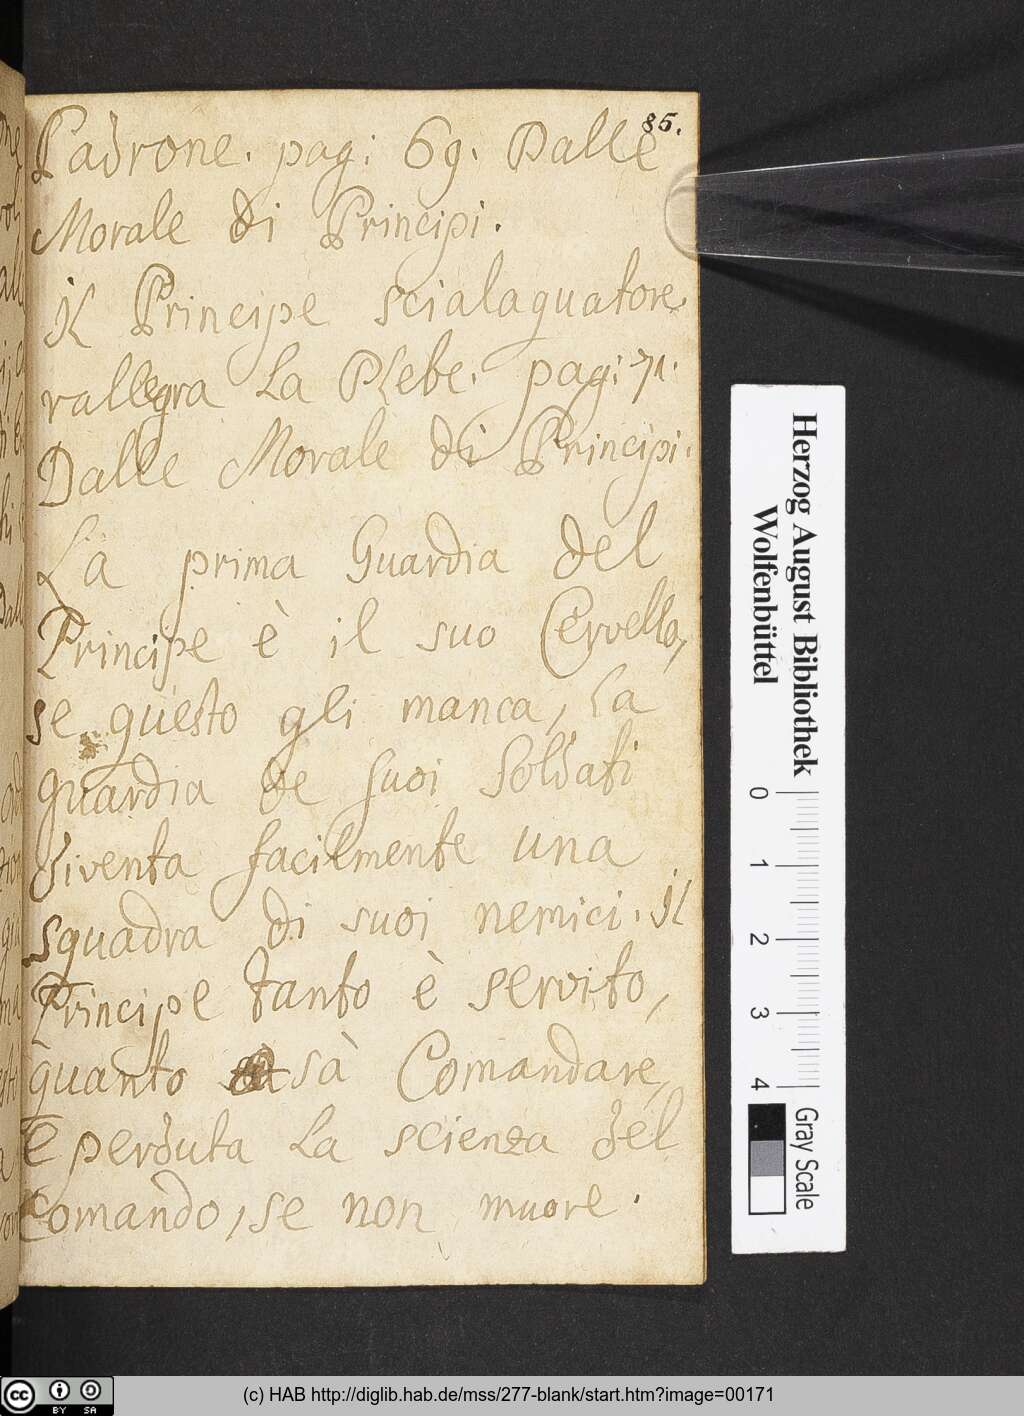 85.
Padrone. pag: 69. Dalle
Morale di Principi.
il Principe scialaquatore
rallegra La Plebe. pag: 71.
Dalle Morale di Principi.
La prima Guardia del
Principe è il suo Cervello,
se questo gli manca, La
guardia de suoi Soldati
diventa facilmente una
squadra di suoi nemici. il
Principe tanto è servito,
quanto sà Comandare,
E perduta La scienza del
Comando, se non muore.
Herzog August Bibliothek
Wolfenbüttel
0 1 2 3 4
Gray Scale
cc BY SA
(c) HAB http://diglib.hab.de/mss/277-blank/start.htm?image=00171